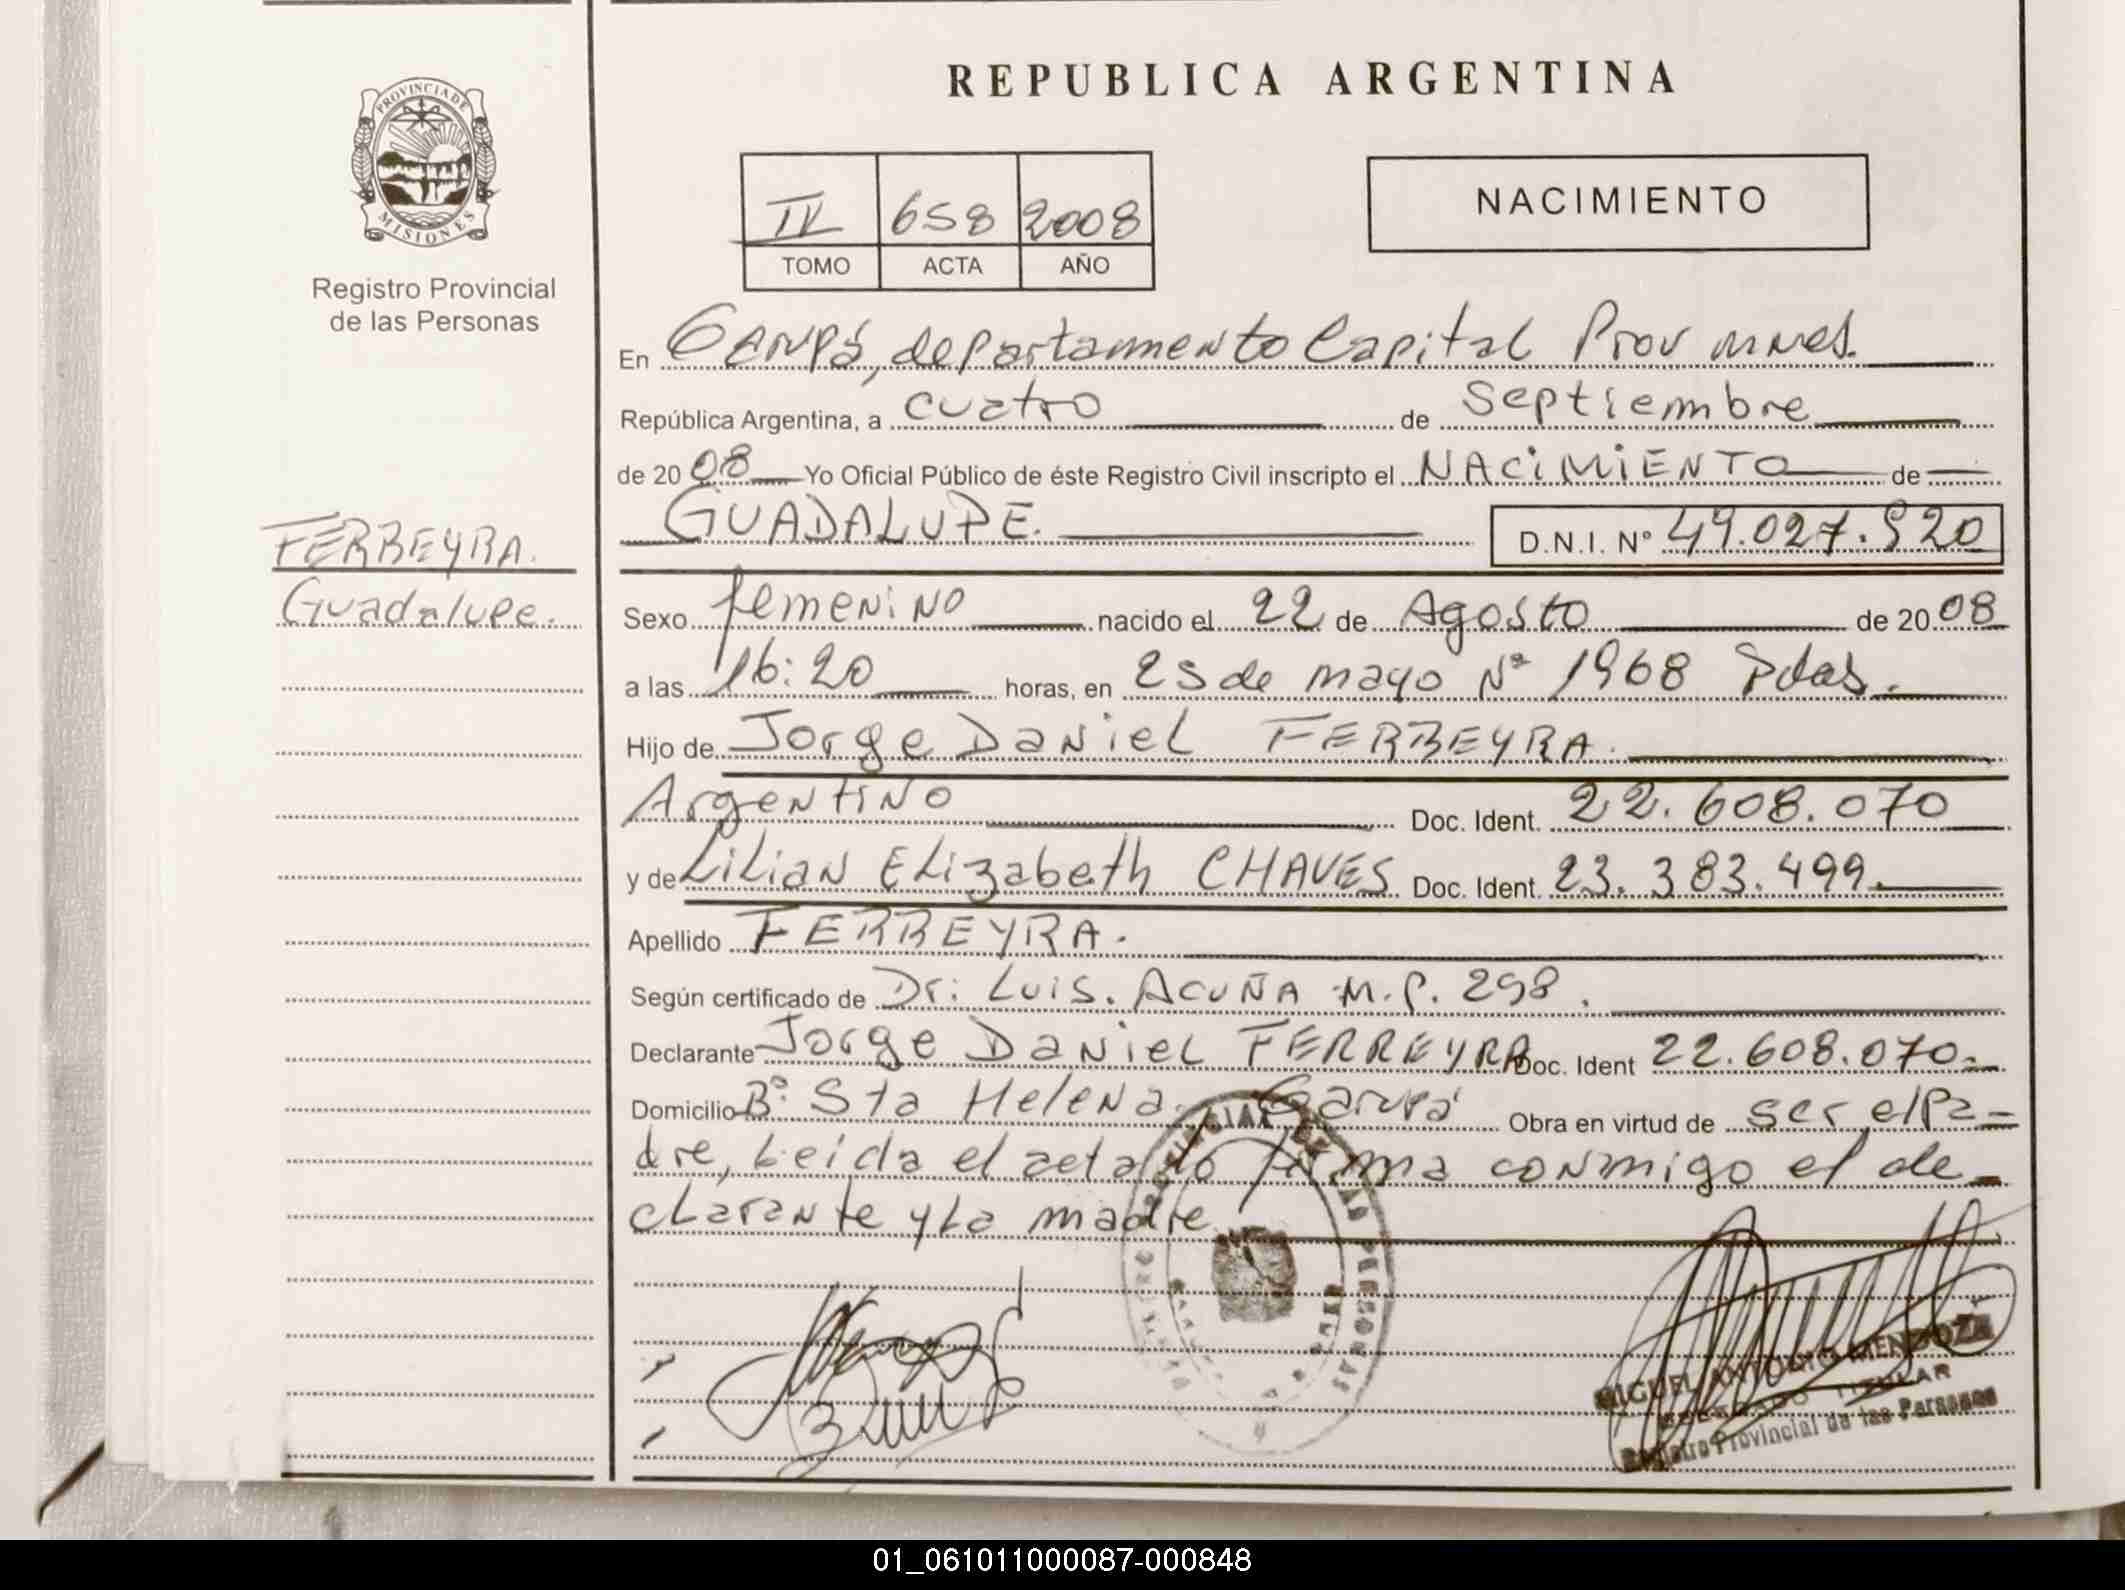 PROVINCIA DE
MISIONES
Registro Provincial
de las Personas
FERREYRA.
Guadalupe.
REPUBLICA ARGENTINA
IV 658 2008
TOMO ACTA AÑO
NACIMIENTO
En Garupá, departamento Capital Prov mnes.
República Argentina, a cuatro de Septiembre
de 2008 Yo Oficial Público de éste Registro Civil inscripto el NACIMIENTO de
GUADALUPE. D.N.I. N° 49.027.920
Sexo femenino nacido el 22 de Agosto de 2008
a las 16:20 horas, en 25 de mayo Nº 1968 Pdas.
Hijo de Jorge Daniel FERREYRA.
Argentino Doc. Ident. 22.608.070
y de Lilian Elizabeth CHAVES Doc. Ident. 23.383.499.
Apellido FERREYRA.
Según certificado de Dr: Luis. Acuña M.P. 298.
Declarante Jorge Daniel FERREYRA Doc. Ident 22.608.070.
Domicilio Bº Sta Helena. Garupá Obra en virtud de ser el pa=
dre, Leida el acta lo firma conmigo el de
clarante y la madre
MIGUEL ANTONIO MENDOZA
TITULAR
Registro Provincial de las Personas
01_061011000087-000848